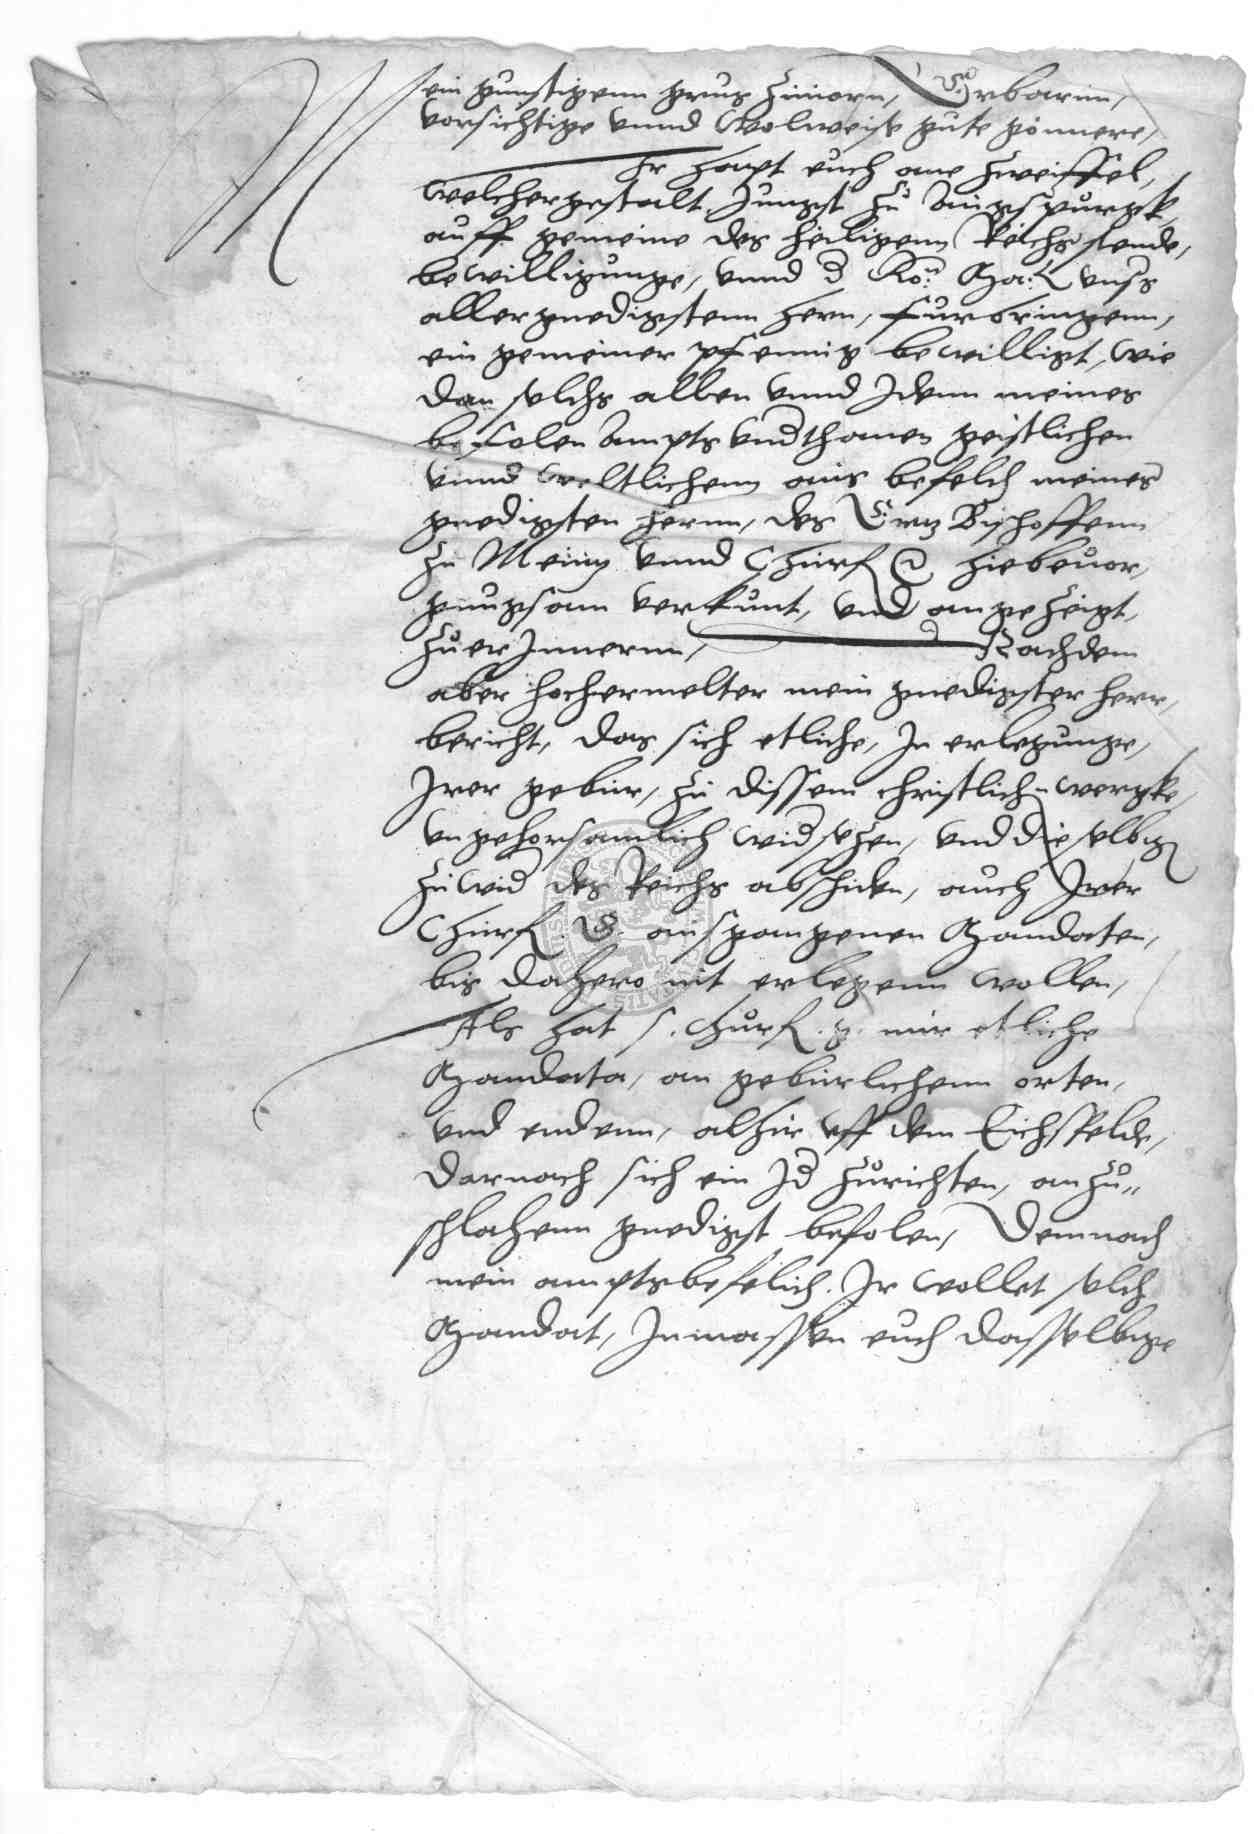 Mein gunstigenn grus zuuorn, Erbarnn,
vorsichtige vnnd Wolweise gute gönnere,
Ir habt euch ane zweiffel,
welchergestalt Jungst zu Augspurgk,
auff gemeine des heiligenn Reichs stende,
bewilligunge, vnnd d Ro: Ma: vnsers
allergnedigstenn hern, furbringenn,
ein gemeiner pfennig bewilligt, wie
dan solchs allen vnnd Jdenn meines
befolen Ampts vnderthanen geistlichen
vnnd weltlichenn aus befelch meines
gnedigsten hernn, des Ertz Bischoffenn
zu Meintz vnnd Churf hiebeuor,
gnugsam verkunt, vnd angezeigt,
zu erJnnernn, Nachdem
aber hochermelter mein gnedigster herr,
bericht, das sich etliche, Jn erlegunge,
Jrer gebur, zu dissem christlichen wergke,
vngehorsamlich widsetzen, vnd dieselbige
zuwid des Reichs abschieden, auch Jrer
Churf G. ausgangenen Mandaten,
bis dahero nit erlegenn wollen,
Als hat s. Churf. g. mir etliche
Mandata, an geburlichenn orten,
vnd endenn, alhir vff dem Eichsfelde,
darnach sich ein Jd zurichten, anzu„
schlahenn gnedigst befolen, Demnach
mein amptsbefelich. Jr wollet solch
Mandat, Jnmassen euch dasselbige